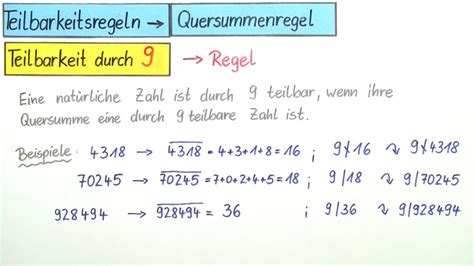 Teilbarkeitsregeln → Quersummenregel
Teilbarkeit durch 9 → Regel
Eine natürliche Zahl ist durch 9 teilbar, wenn ihre
Quersumme eine durch 9 teilbare Zahl ist.
Beispiele: 4318 → 4̅3̅1̅8̅ = 4+3+1+8 = 16 ; 9∤16 ↷ 9∤4318
70245 → 7̅0̅2̅4̅5̅ = 7+0+2+4+5 = 18 ; 9|18 ↷ 9|70245
928494 → 9̅2̅8̅4̅9̅4̅ = 36 ; 9|36 ↷ 9|928494